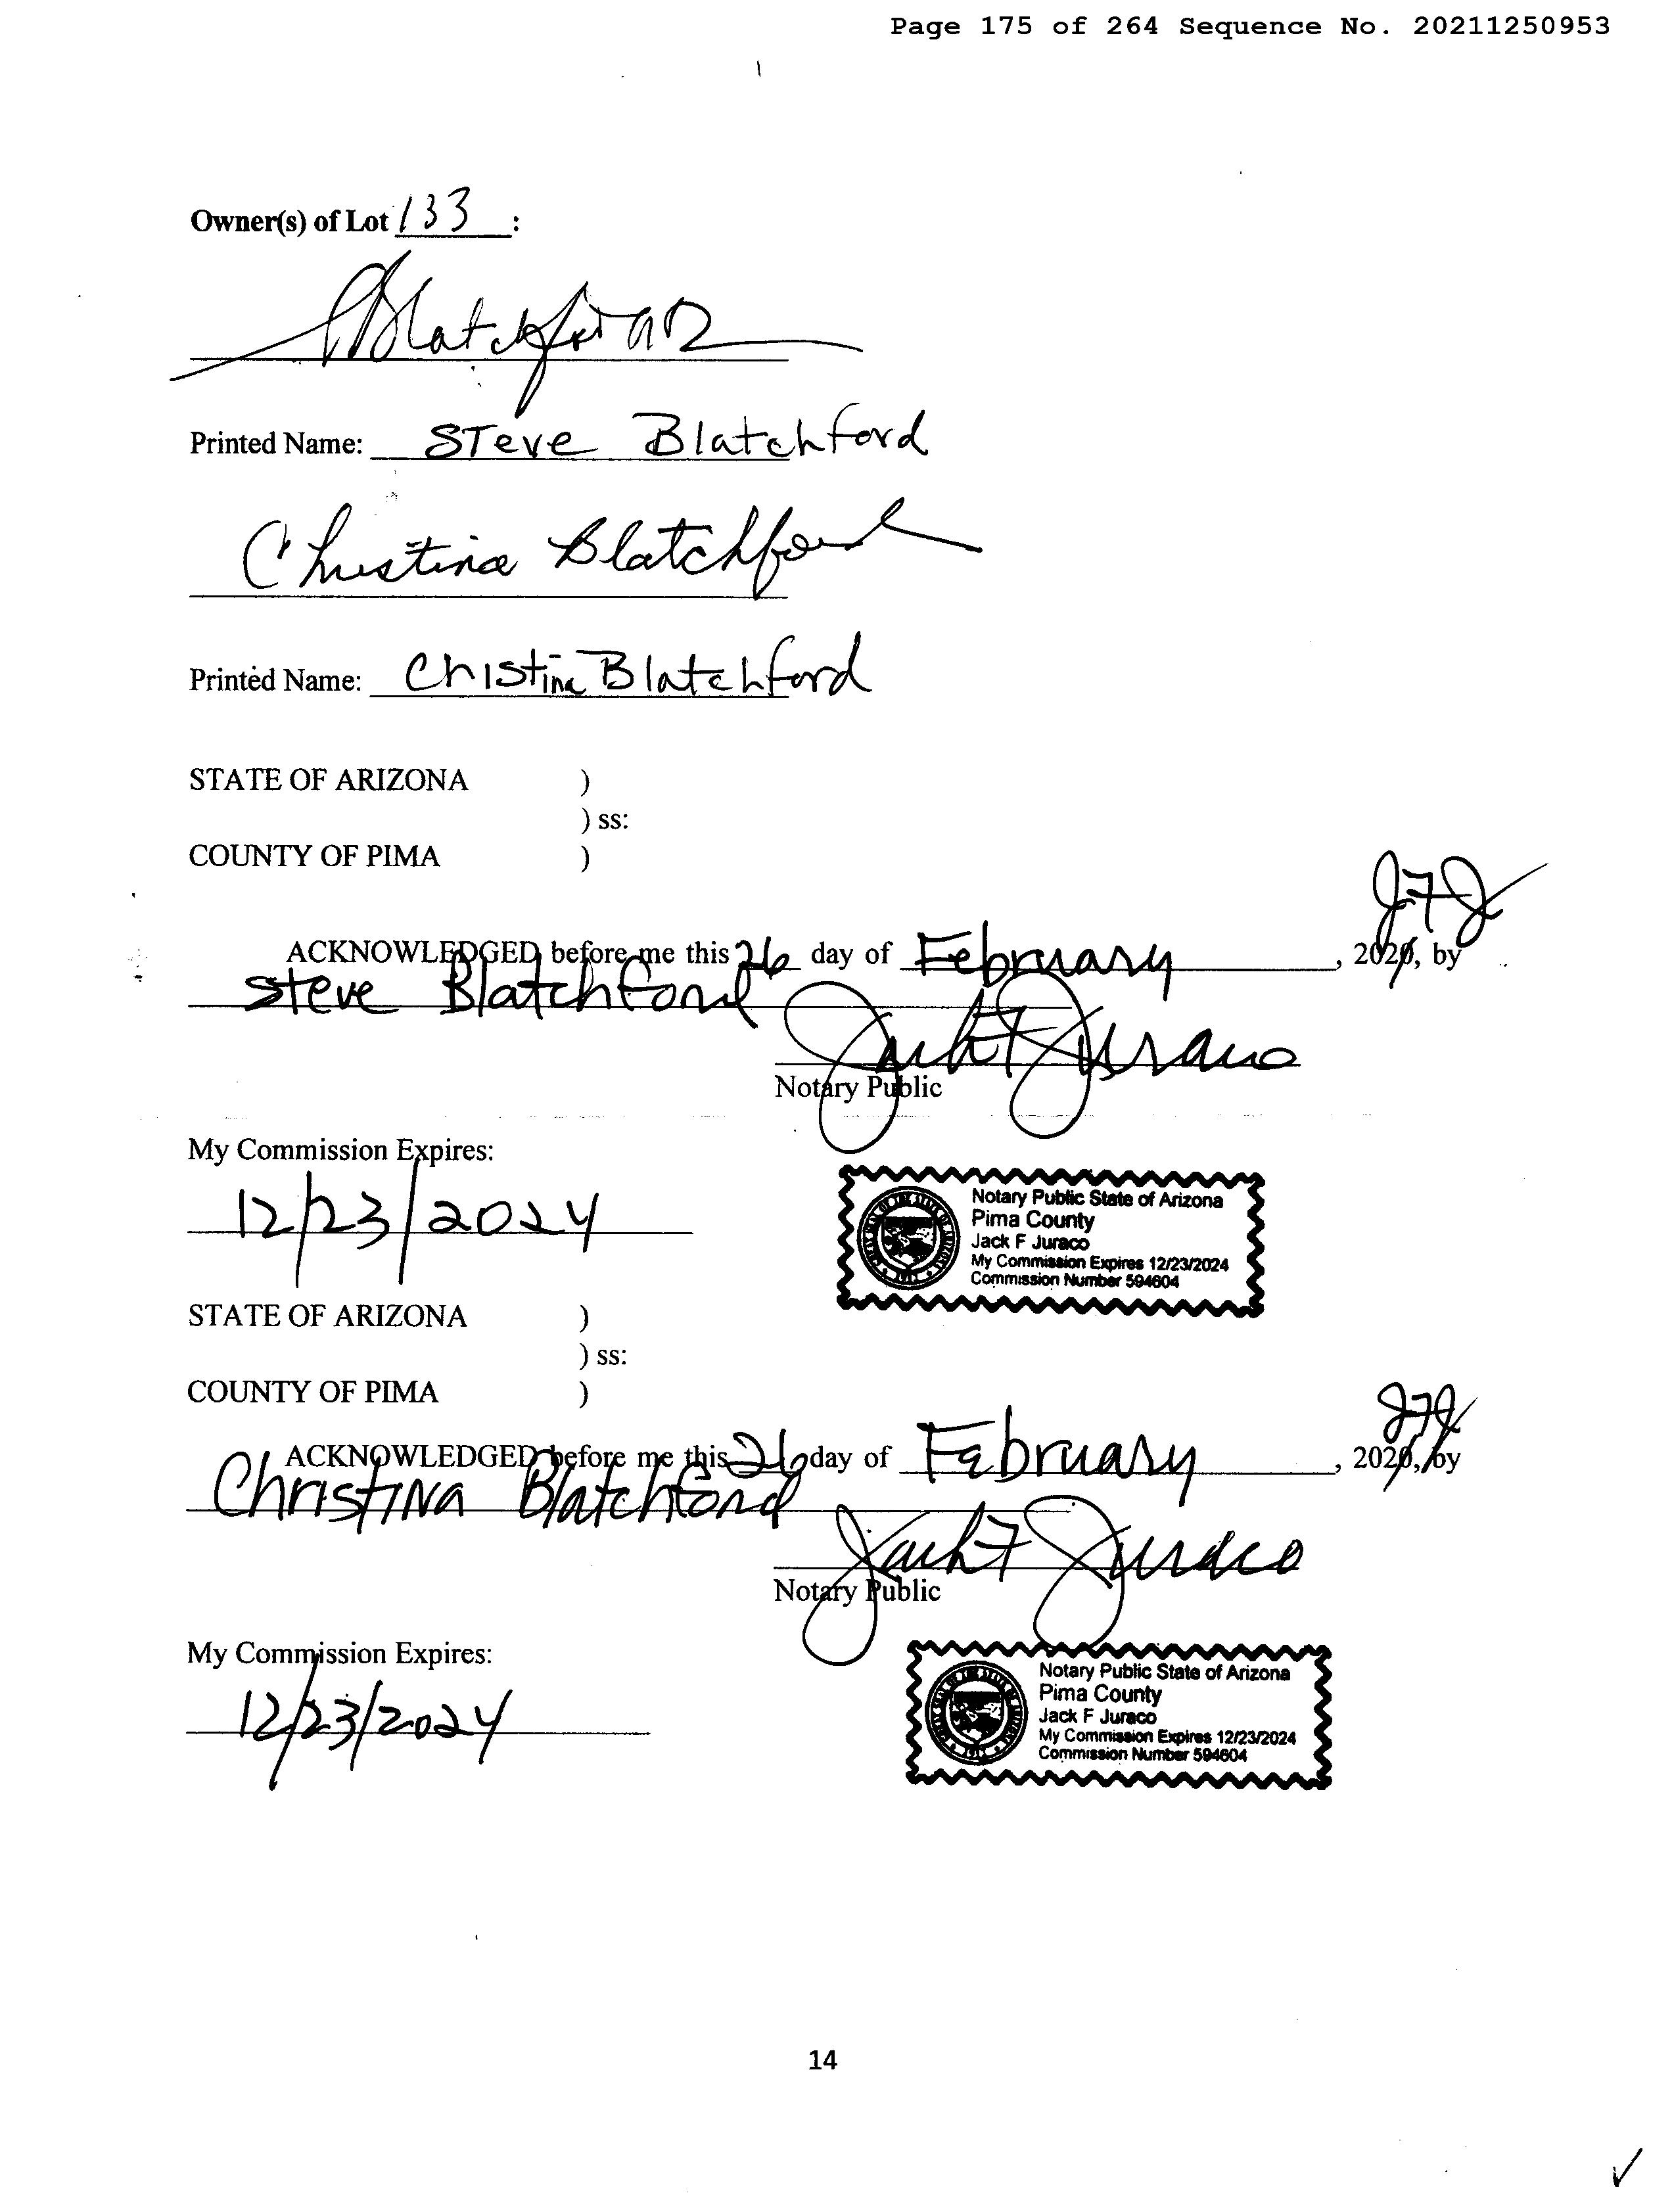 Page 175 of 264 Sequence No. 20211250953
Owner(s) of Lot 133 :
Blatchford
Printed Name: STeve Blatchford
Christina Blatchford
Printed Name: Christina Blatchford
STATE OF ARIZONA )
) ss:
COUNTY OF PIMA )
JFJ
ACKNOWLEDGED before me this 26 day of February, 202, by
Steve Blatchford
Jack F Juraco
Notary Public
My Commission Expires:
12/23/2024
Notary Public State of Arizona
Pima County
Jack F Juraco
My Commission Expires 12/23/2024
Commission Number 594604
STATE OF ARIZONA )
) ss:
COUNTY OF PIMA )
JFJ
ACKNOWLEDGED before me this 26 day of February, 202, by
Christina Blatchford
Jack F Juraco
Notary Public
My Commission Expires:
12/23/2024
Notary Public State of Arizona
Pima County
Jack F Juraco
My Commission Expires 12/23/2024
Commission Number 594604
14